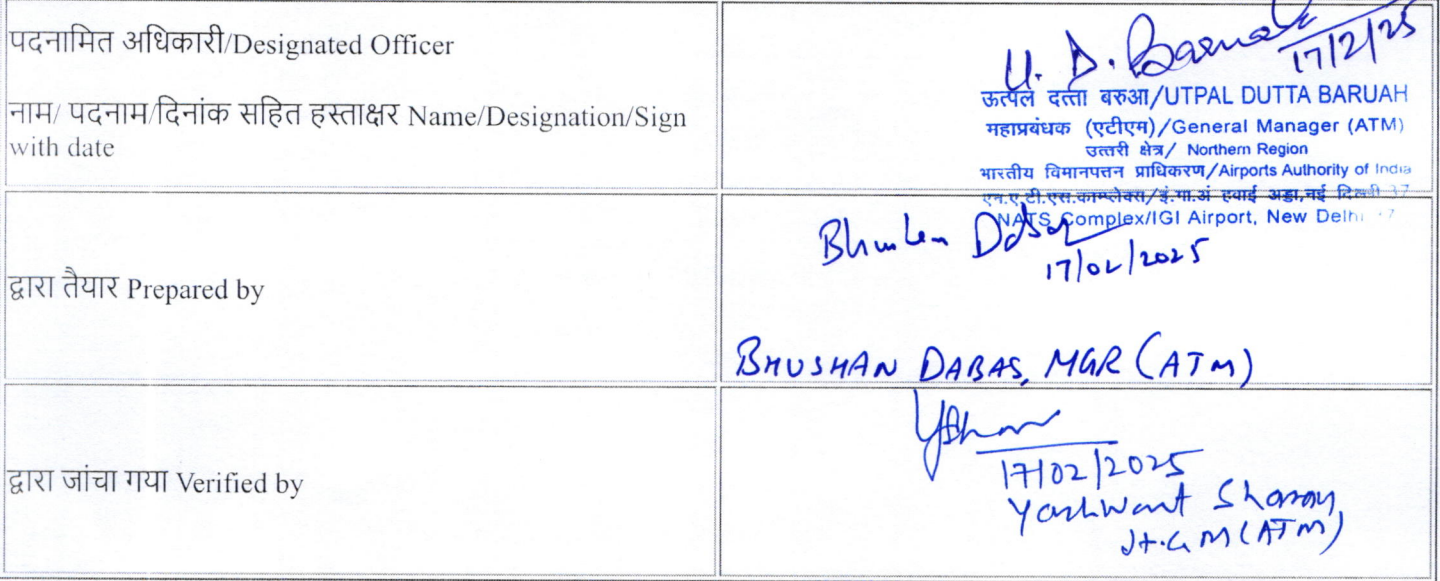 पदनामित अधिकारी/Designated Officer
नाम/ पदनाम/दिनांक सहित हस्ताक्षर Name/Designation/Sign
with date
U. D. Baruah
17/2/25
ऊत्पल दत्ता बरुआ/UTPAL DUTTA BARUAH
महाप्रबंधक (एटीएम)/General Manager (ATM)
उत्तरी क्षेत्र/ Northern Region
भारतीय विमानपत्तन प्राधिकरण/Airports Authority of India
एन.ए.टी.एस.काम्प्लेक्स/इं.गा.अं हवाई अड्डा,नई दिल्ली 37
NATS Complex/IGI Airport, New Delhi
द्वारा तैयार Prepared by
Bhushan Dabas
17/02/2025
BHUSHAN DABAS, MGR (ATM)
द्वारा जांचा गया Verified by
17/02/2025
Yashwant Sharma
Jt. GM (ATM)